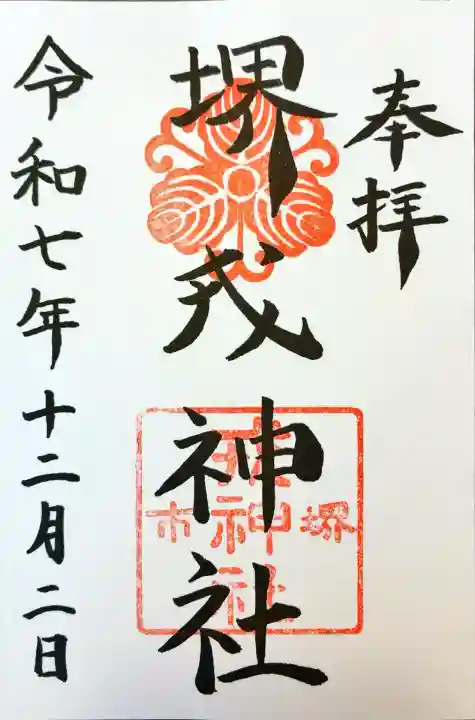 奉拝
堺戎神社
令和七年十二月二日
堺
神社
市